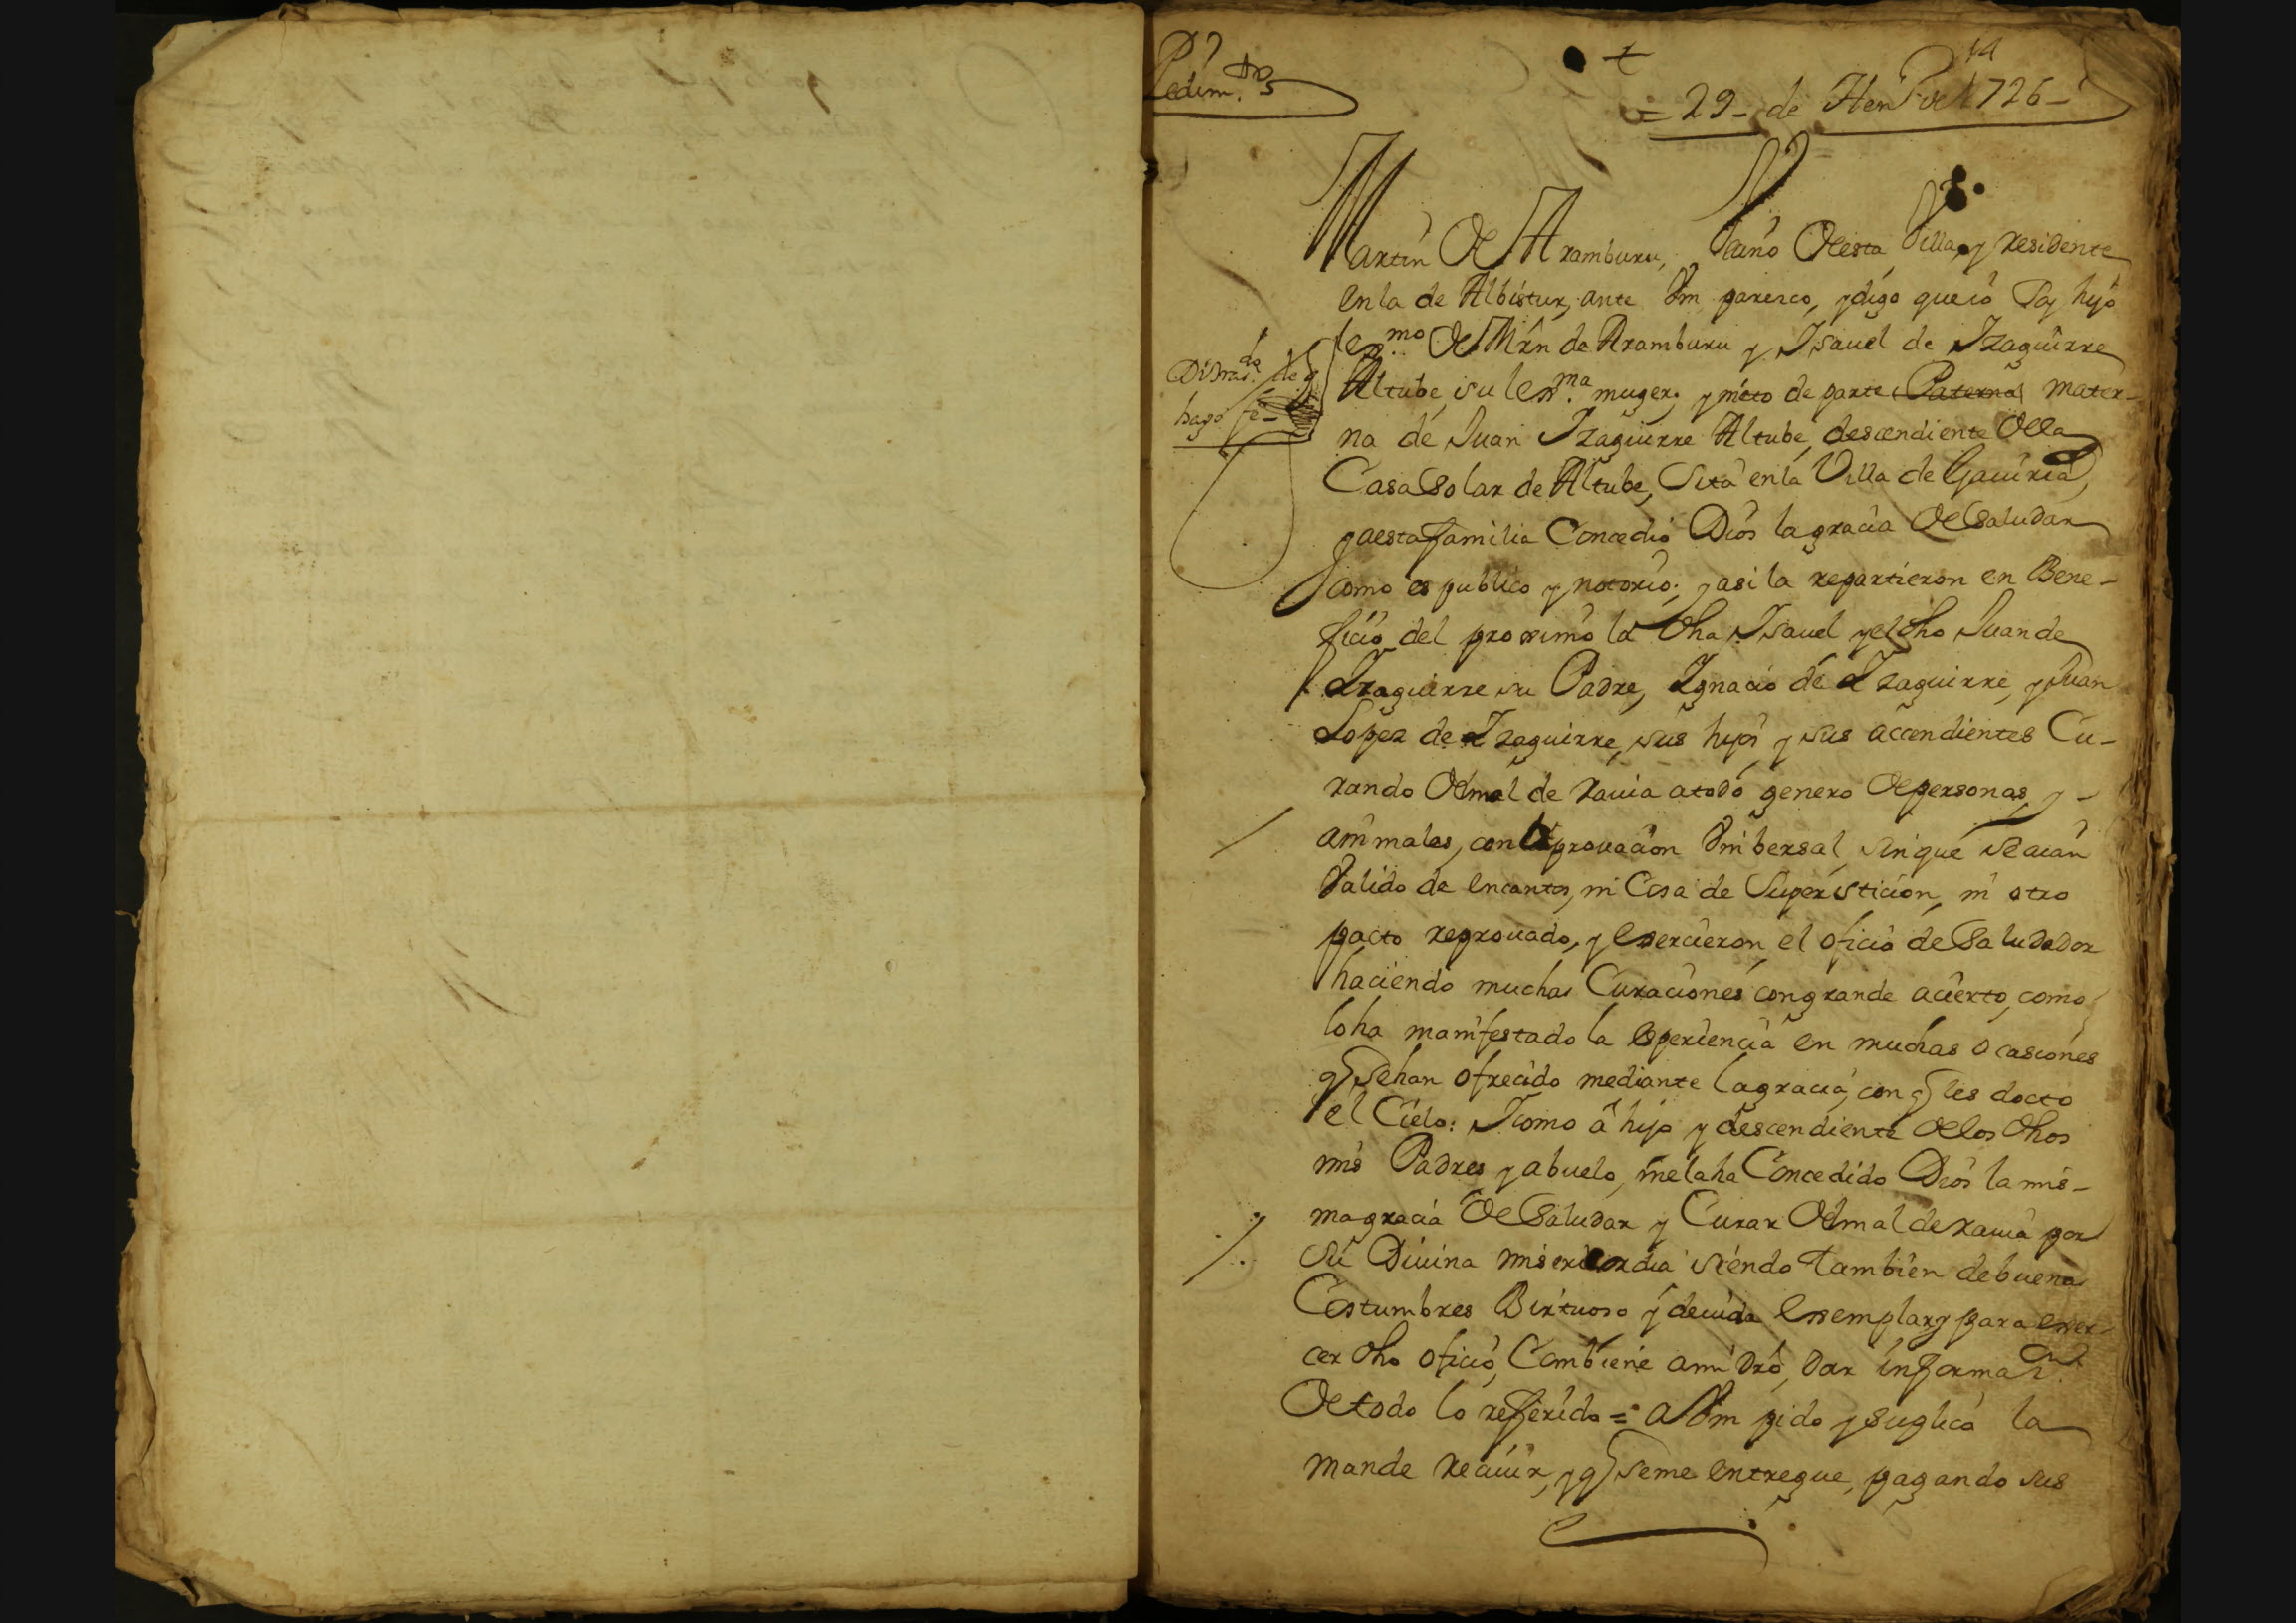 Pedim.to
29 de Hen.o de 1726
Martin de Aramburu, Vecino desta Villa, y residente
en la de Albistur, ante Vm paresco, y digo que io soy hijo
lex.mo de Mrn de Aramburu y Isauel de Izaguirre
Altube, su lex.ma muger, y nieto de parte Paterna mater-
na de Juan Izaguirre Altube, descendiente de la
Casa Solar de Altube, Sita en la Villa de Gauiria,
y a esta familia Concedio Dios la gracia de Saludar
como es publico y notorio; y asi la repartieron en Bene-
ficio del proximo la dha Isauel y el dho Juan de
Izaguirre su Padre, Ignacio de Izaguirre, y Juan
Lopez de Izaguirre, sus hijos y sus accendientes Cu-
rando del mal de rauia a todo genero de personas, y
animales, con aprouacion Vnibersal, sin que se aian
Valido de encantos, ni Cosa de Superisticion, ni otro
pacto reprouado, y exercieron el oficio de Saludador
haciendo muchas Curaciones con grande acierto, como
lo ha manifestado la esperiencia en muchas ocasiones
q se han ofrecido mediante la gracia, con q les docto
el Cielo: Y como â hijo y descendiente de los dhos
mis Padres y abuelo, me la ha Concedido Dios la mis-
ma gracia de Saludar y Curar del mal de rauia por
su Diuina misericordia siendo tambien de buena
Costumbres Birtuoso y de uida exemplar y para exer-
cer dho oficio, Combiene a mi dro, dar informaz.on
de todo lo refferido = a Vm pido y suplico la
mande reciuir, y q se me entregue, pagando sus
diuras.do de q
hago fe